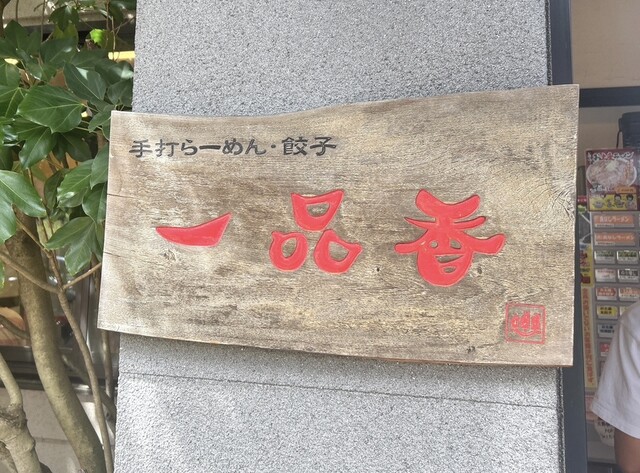 手打らーめん・餃子
一品香